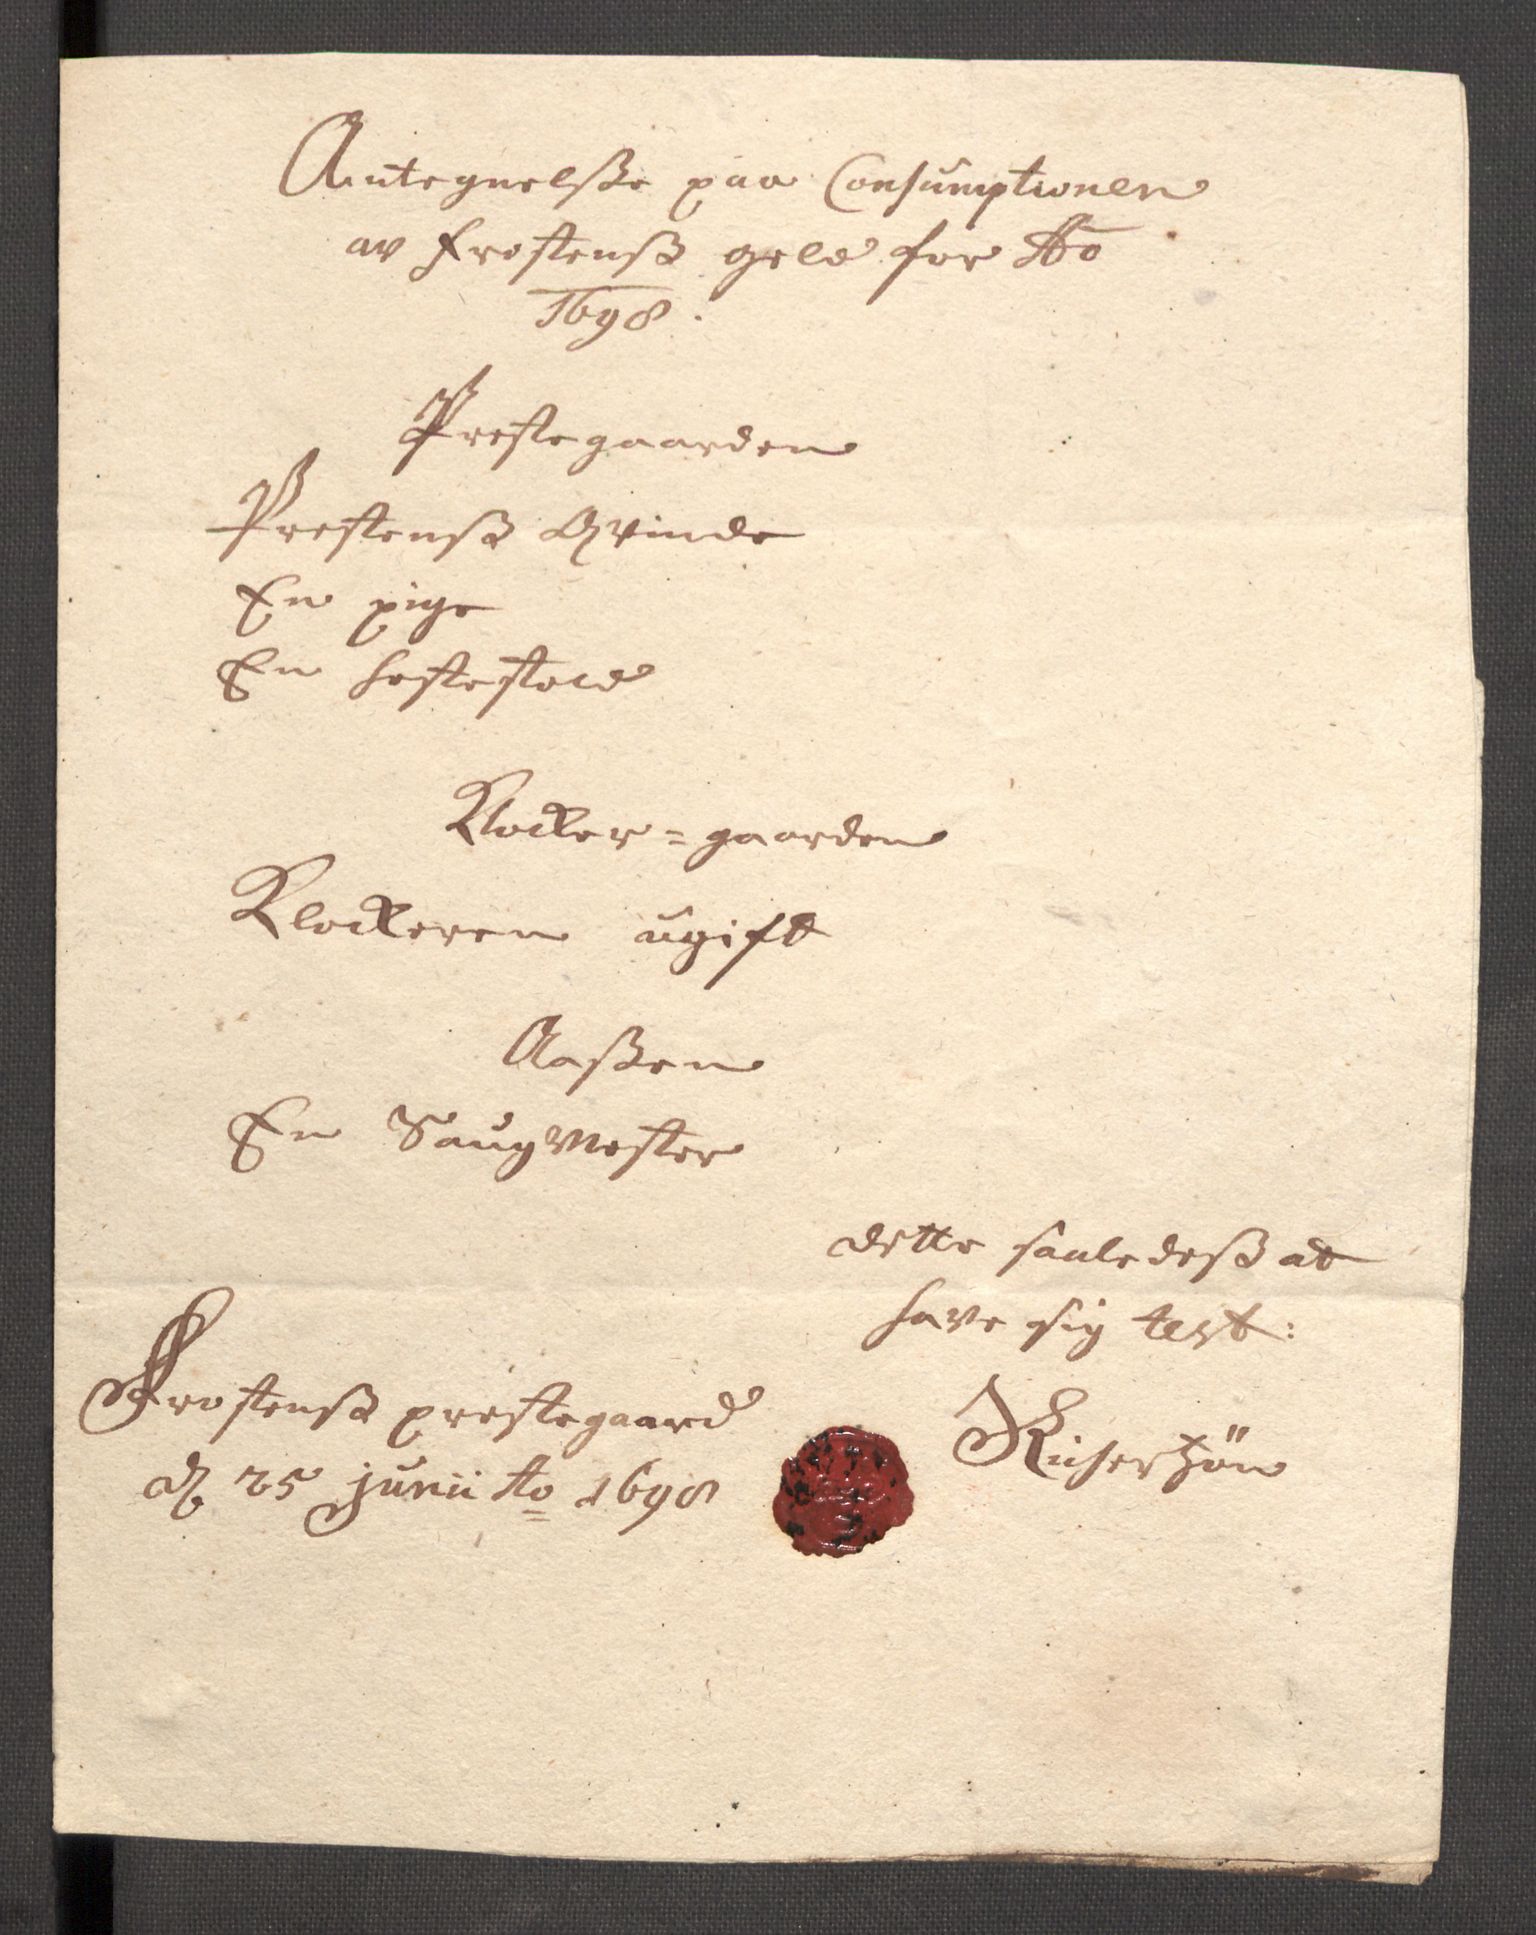 Antegnelsse paa Consumptionen
av Frostenss geld for Ao
1698.
Prestegaarden
Prestenss Qvinde
En pige
En hestestald
Klocker=gaarden
Klockeren ugift
Aassen
En Saugmester
dette saaledess at
have sig test:
Frostenss prestegaard
d 25 junii Ao 1698